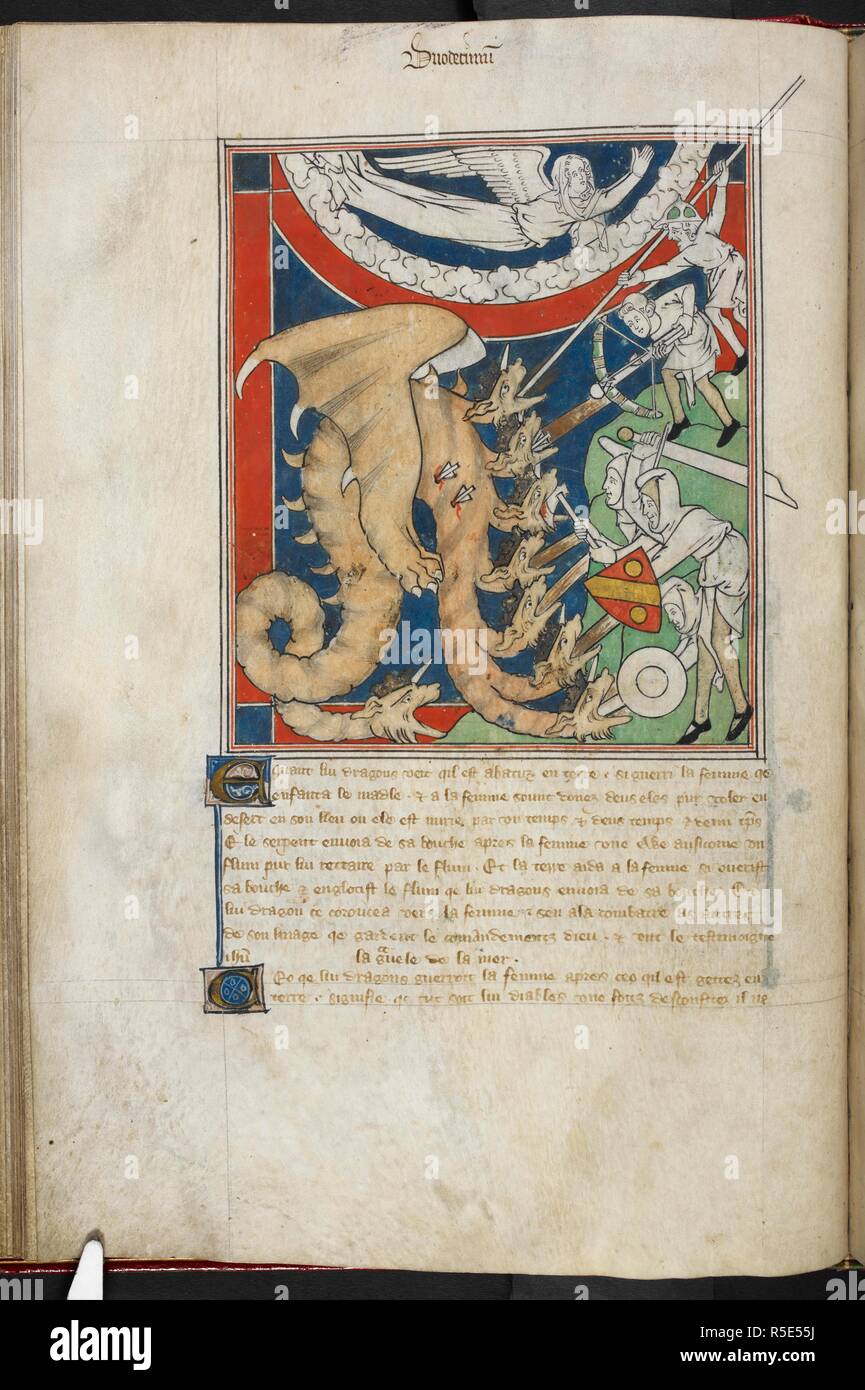 Duodecimum
Equant liu dragons veit qil est abatuz en terre . si guerri la femme qe
enfanta le madle . & a la femme sount donez deus eles pur voler en
desert en son lieu ou ele est norie par un temps & deus temps & demi
E le serpent envoia de sa bouche apres la femme une ewe ausicome un
flum pur lui traire par le flum . Et la terre aida a la femme si overist
sa bouche & englotist le flum qe liu dragons envoia de sa bouche .
liu dragon ce coroucea vers la femme & sen ala combatre as autres
de son linage qe gardent le comandementz dieu . & ount le testmoigne
ihu la gravele de la mer .
Ceo qe liu dragons guerroit la femme apres ceo qil est gettez en
terre . signifie qe tut soit liu diables une foiz desconfitez il ne
alamy
Image ID: R5E55J
www.alamy.com